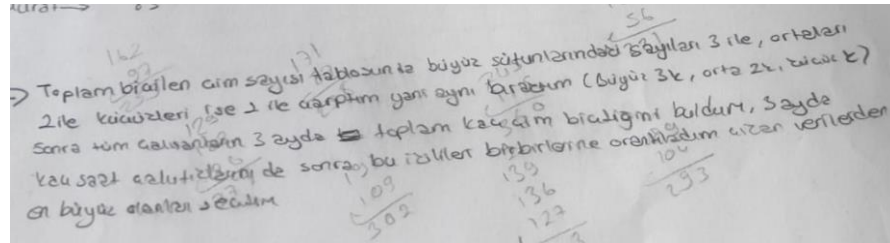 → Toplam biçilen çim sayısı tablosunda büyük sütunlarındaki sayıları 3 ile, ortaları
2 ile küçükleri ise 1 ile çarptım yani aynı bıraktım (Büyük 3k, orta 2k, küçük k)
Sonra tüm çalışanların 3 ayda toplam kaç çim biçtiğini buldum, 3 ayda
kaç saat çalıştıklarını de sonra, bu ikililer birbirlerine orantıladım çıkan verilerden
en büyük olanları seçtim
162
171
56
109
302
139
136
127
104
293